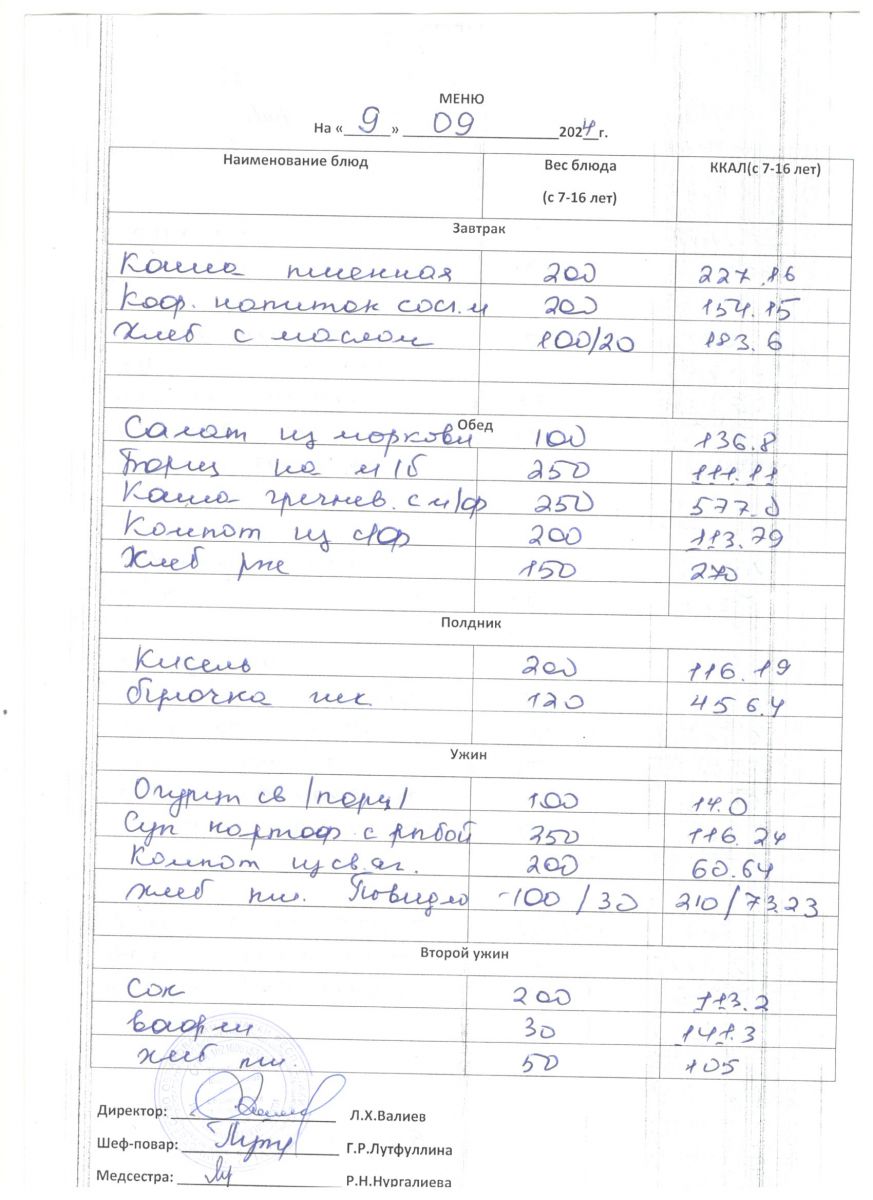 МЕНЮ
На «9» 09 2024г.
Наименование блюд Вес блюда (с 7-16 лет) ККАЛ(с 7-16 лет)
Завтрак
Каша пшенная 200 227.86
Коф. напиток со сг.м 200 154.15
Хлеб с маслом 100/20 183.6
Обед
Салат из моркови 100 136.8
Борщ на м/б 250 111.11
Каша гречнев. с м/ф 250 577.0
Компот из с/ф 200 113.79
Хлеб рж 150 270
Полдник
Кисель 200 116.19
булочка 120 456.4
Ужин
Огурцы св /порц/ 100 14.0
Суп картоф. с рыбой 250 116.24
Компот из св. яг. 200 60.64
хлеб пш. Повидло 100 / 30 210/73.23
Второй ужин
Сок 200 113.2
вафли 30 141.3
хлеб пш. 50 105
Директор: Л.Х.Валиев
Шеф-повар: Г.Р.Лутфуллина
Медсестра: Р.Н.Нургалиева